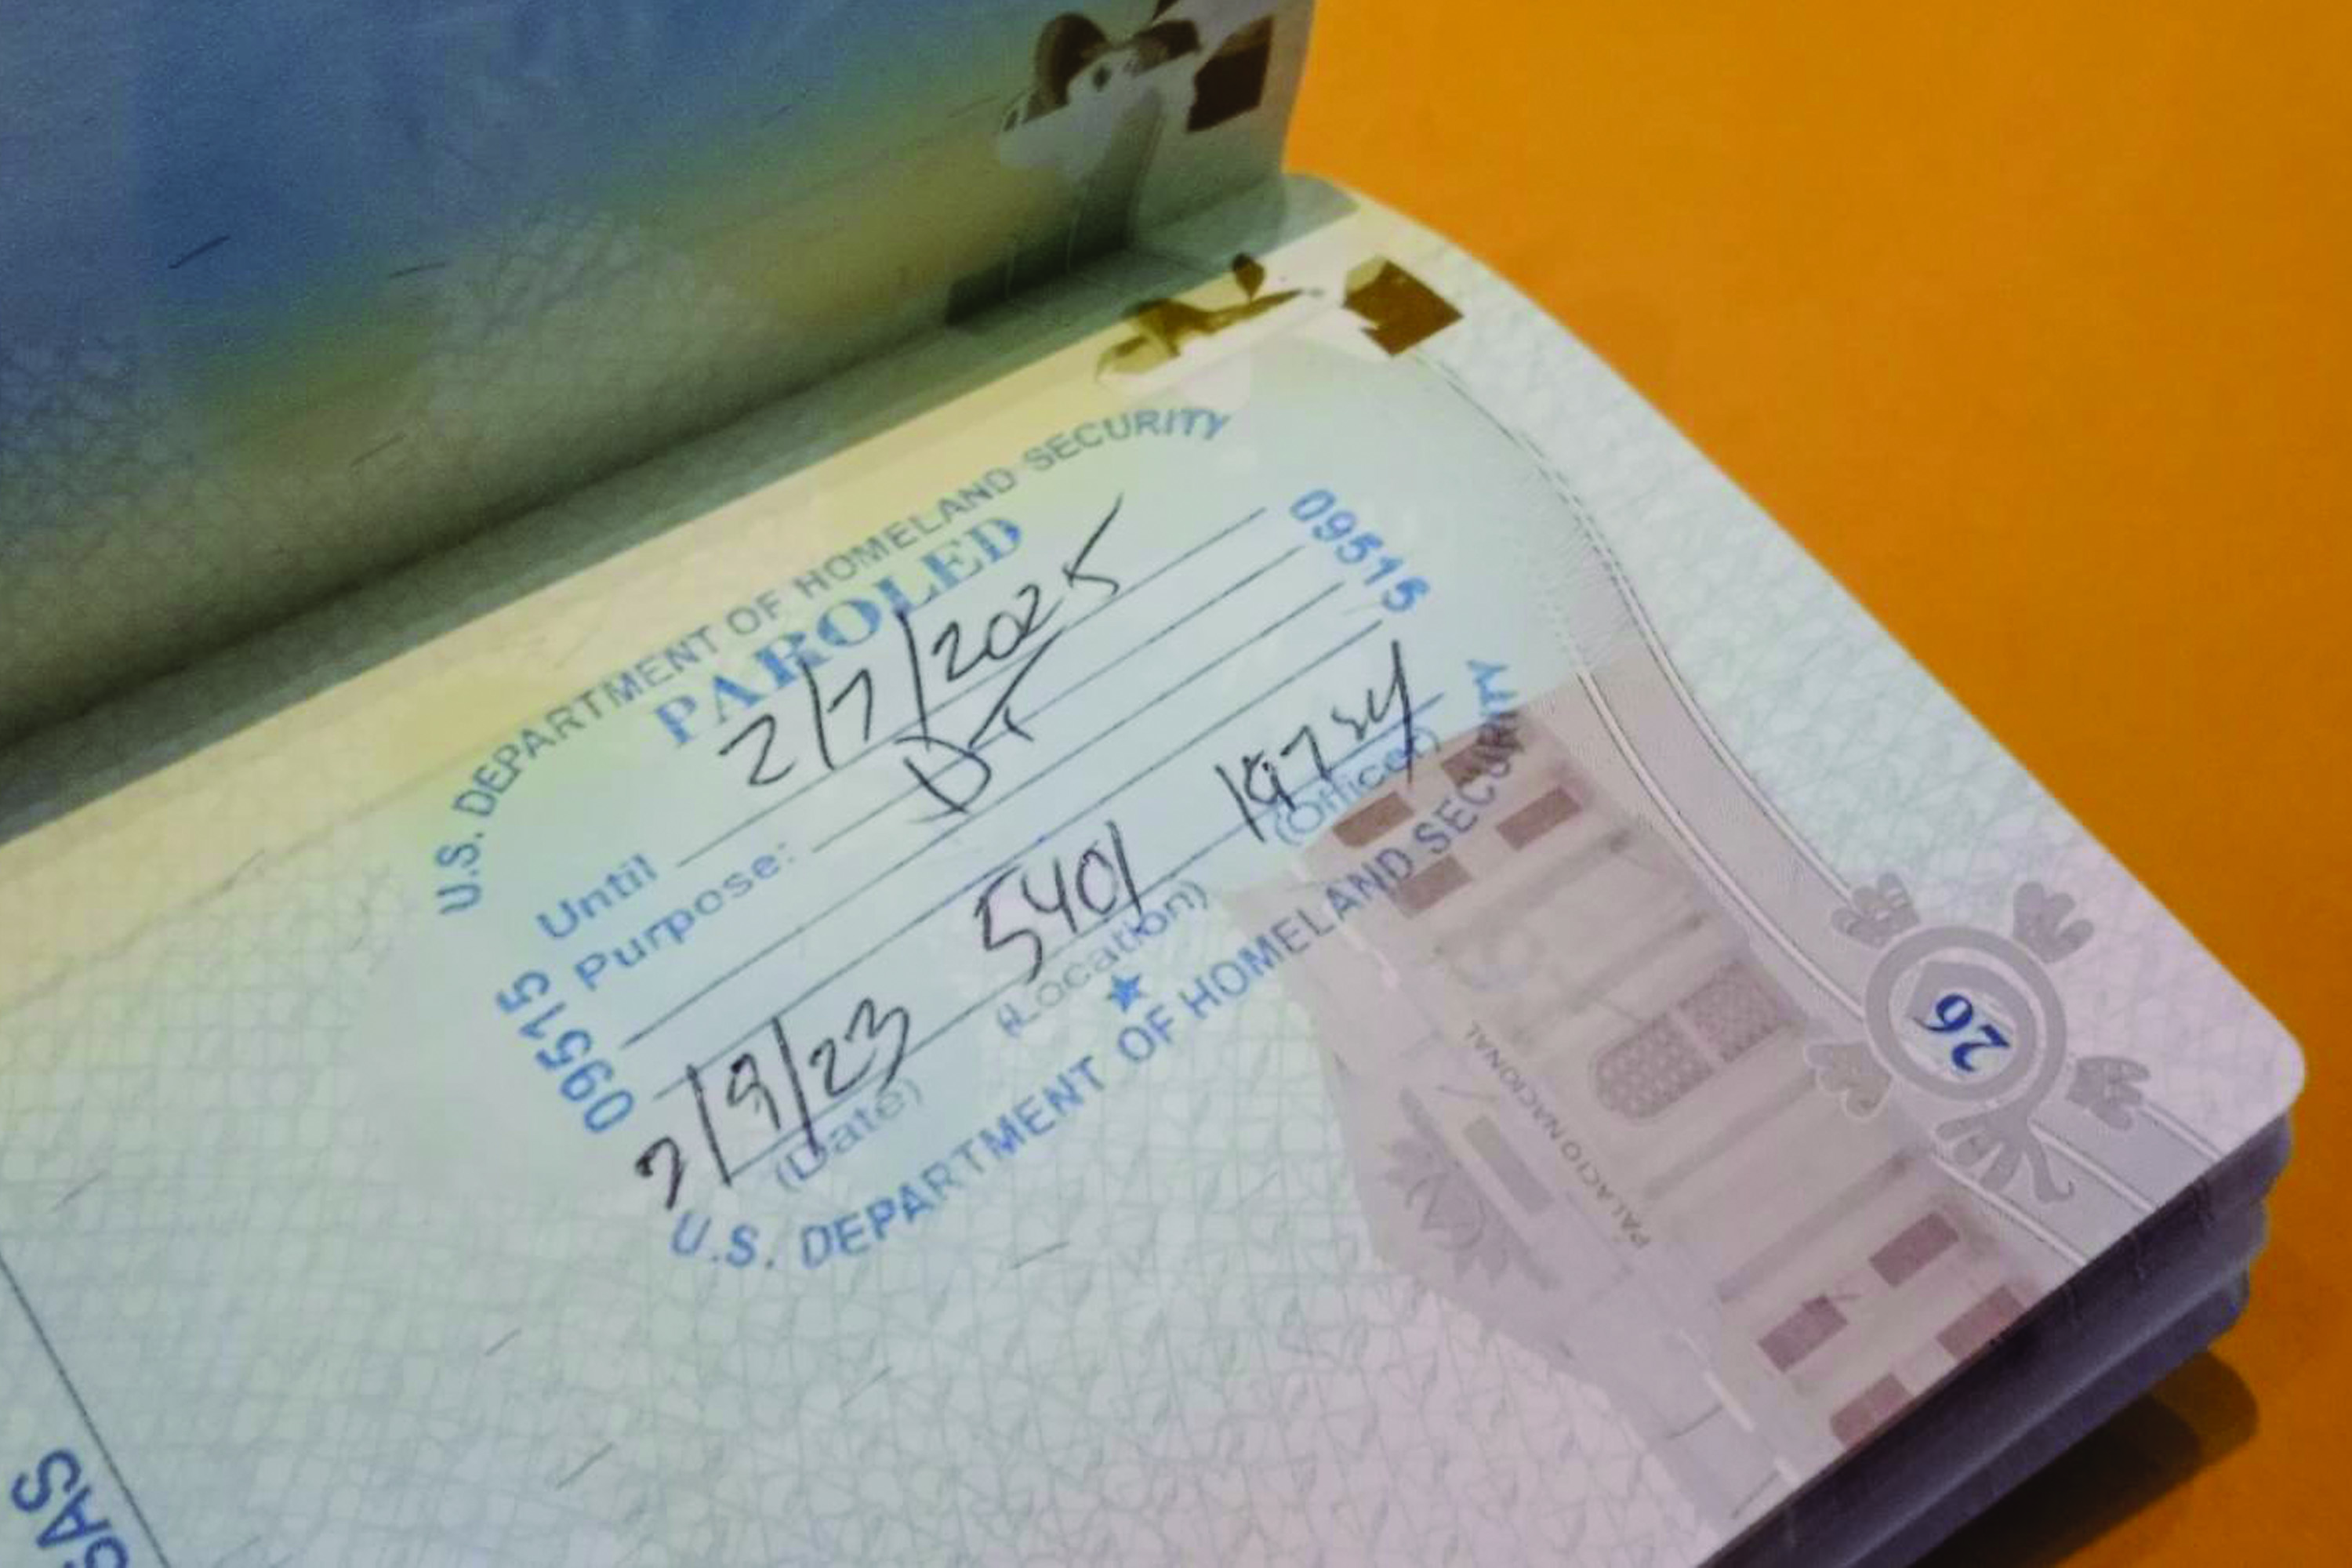 U.S. DEPARTMENT OF HOMELAND SECURITY
PAROLED
09515
Until 2/7/2025
Purpose: DT
09515
2/9/23 5401
(Date) (Location) (Officer)
U.S. DEPARTMENT OF HOMELAND SECURITY
PALACIO NACIONAL
26